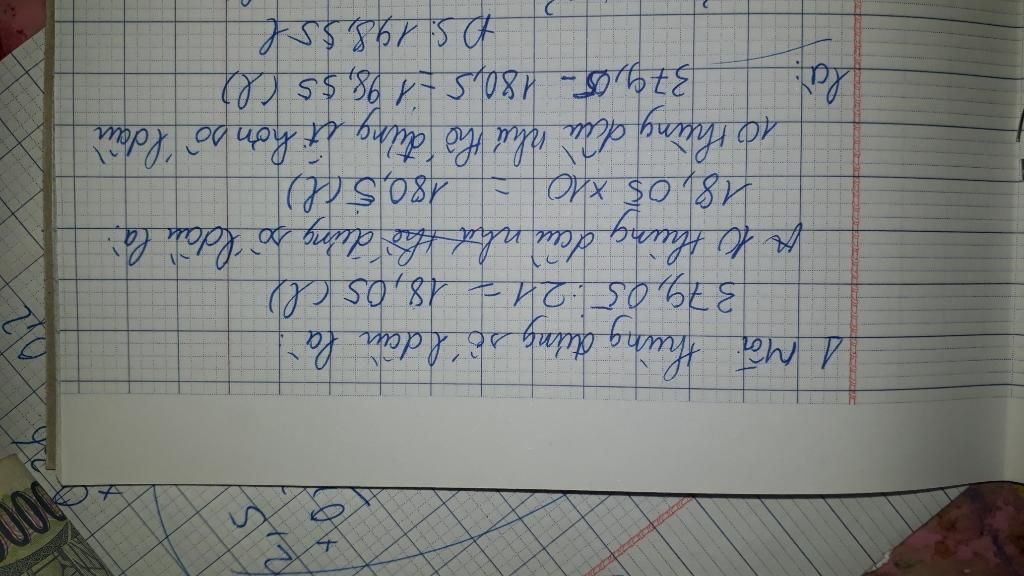 1 Mỗi thùng đựng số l dầu là:
379,05 : 21 = 18,05 (l)
10 thùng dầu như thế đựng số l dầu là:
18,05 x 10 = 180,5 (l)
10 thùng dầu như thế đựng ít hơn số l dầu
là:
379,05 - 180,5 = 198,55 (l)
Đ S: 198,55 l